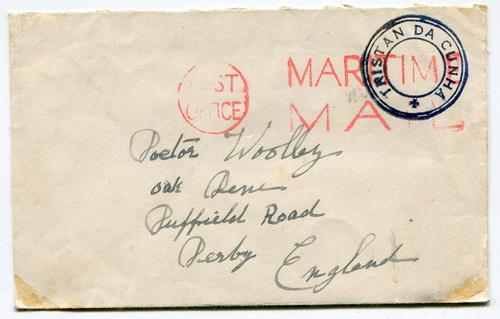 TRISTAN DA CUNHA
POST OFFICE
MARITIME
MAIL
Doctor Woolley
Oak Dene
Duffield Road
Derby
England